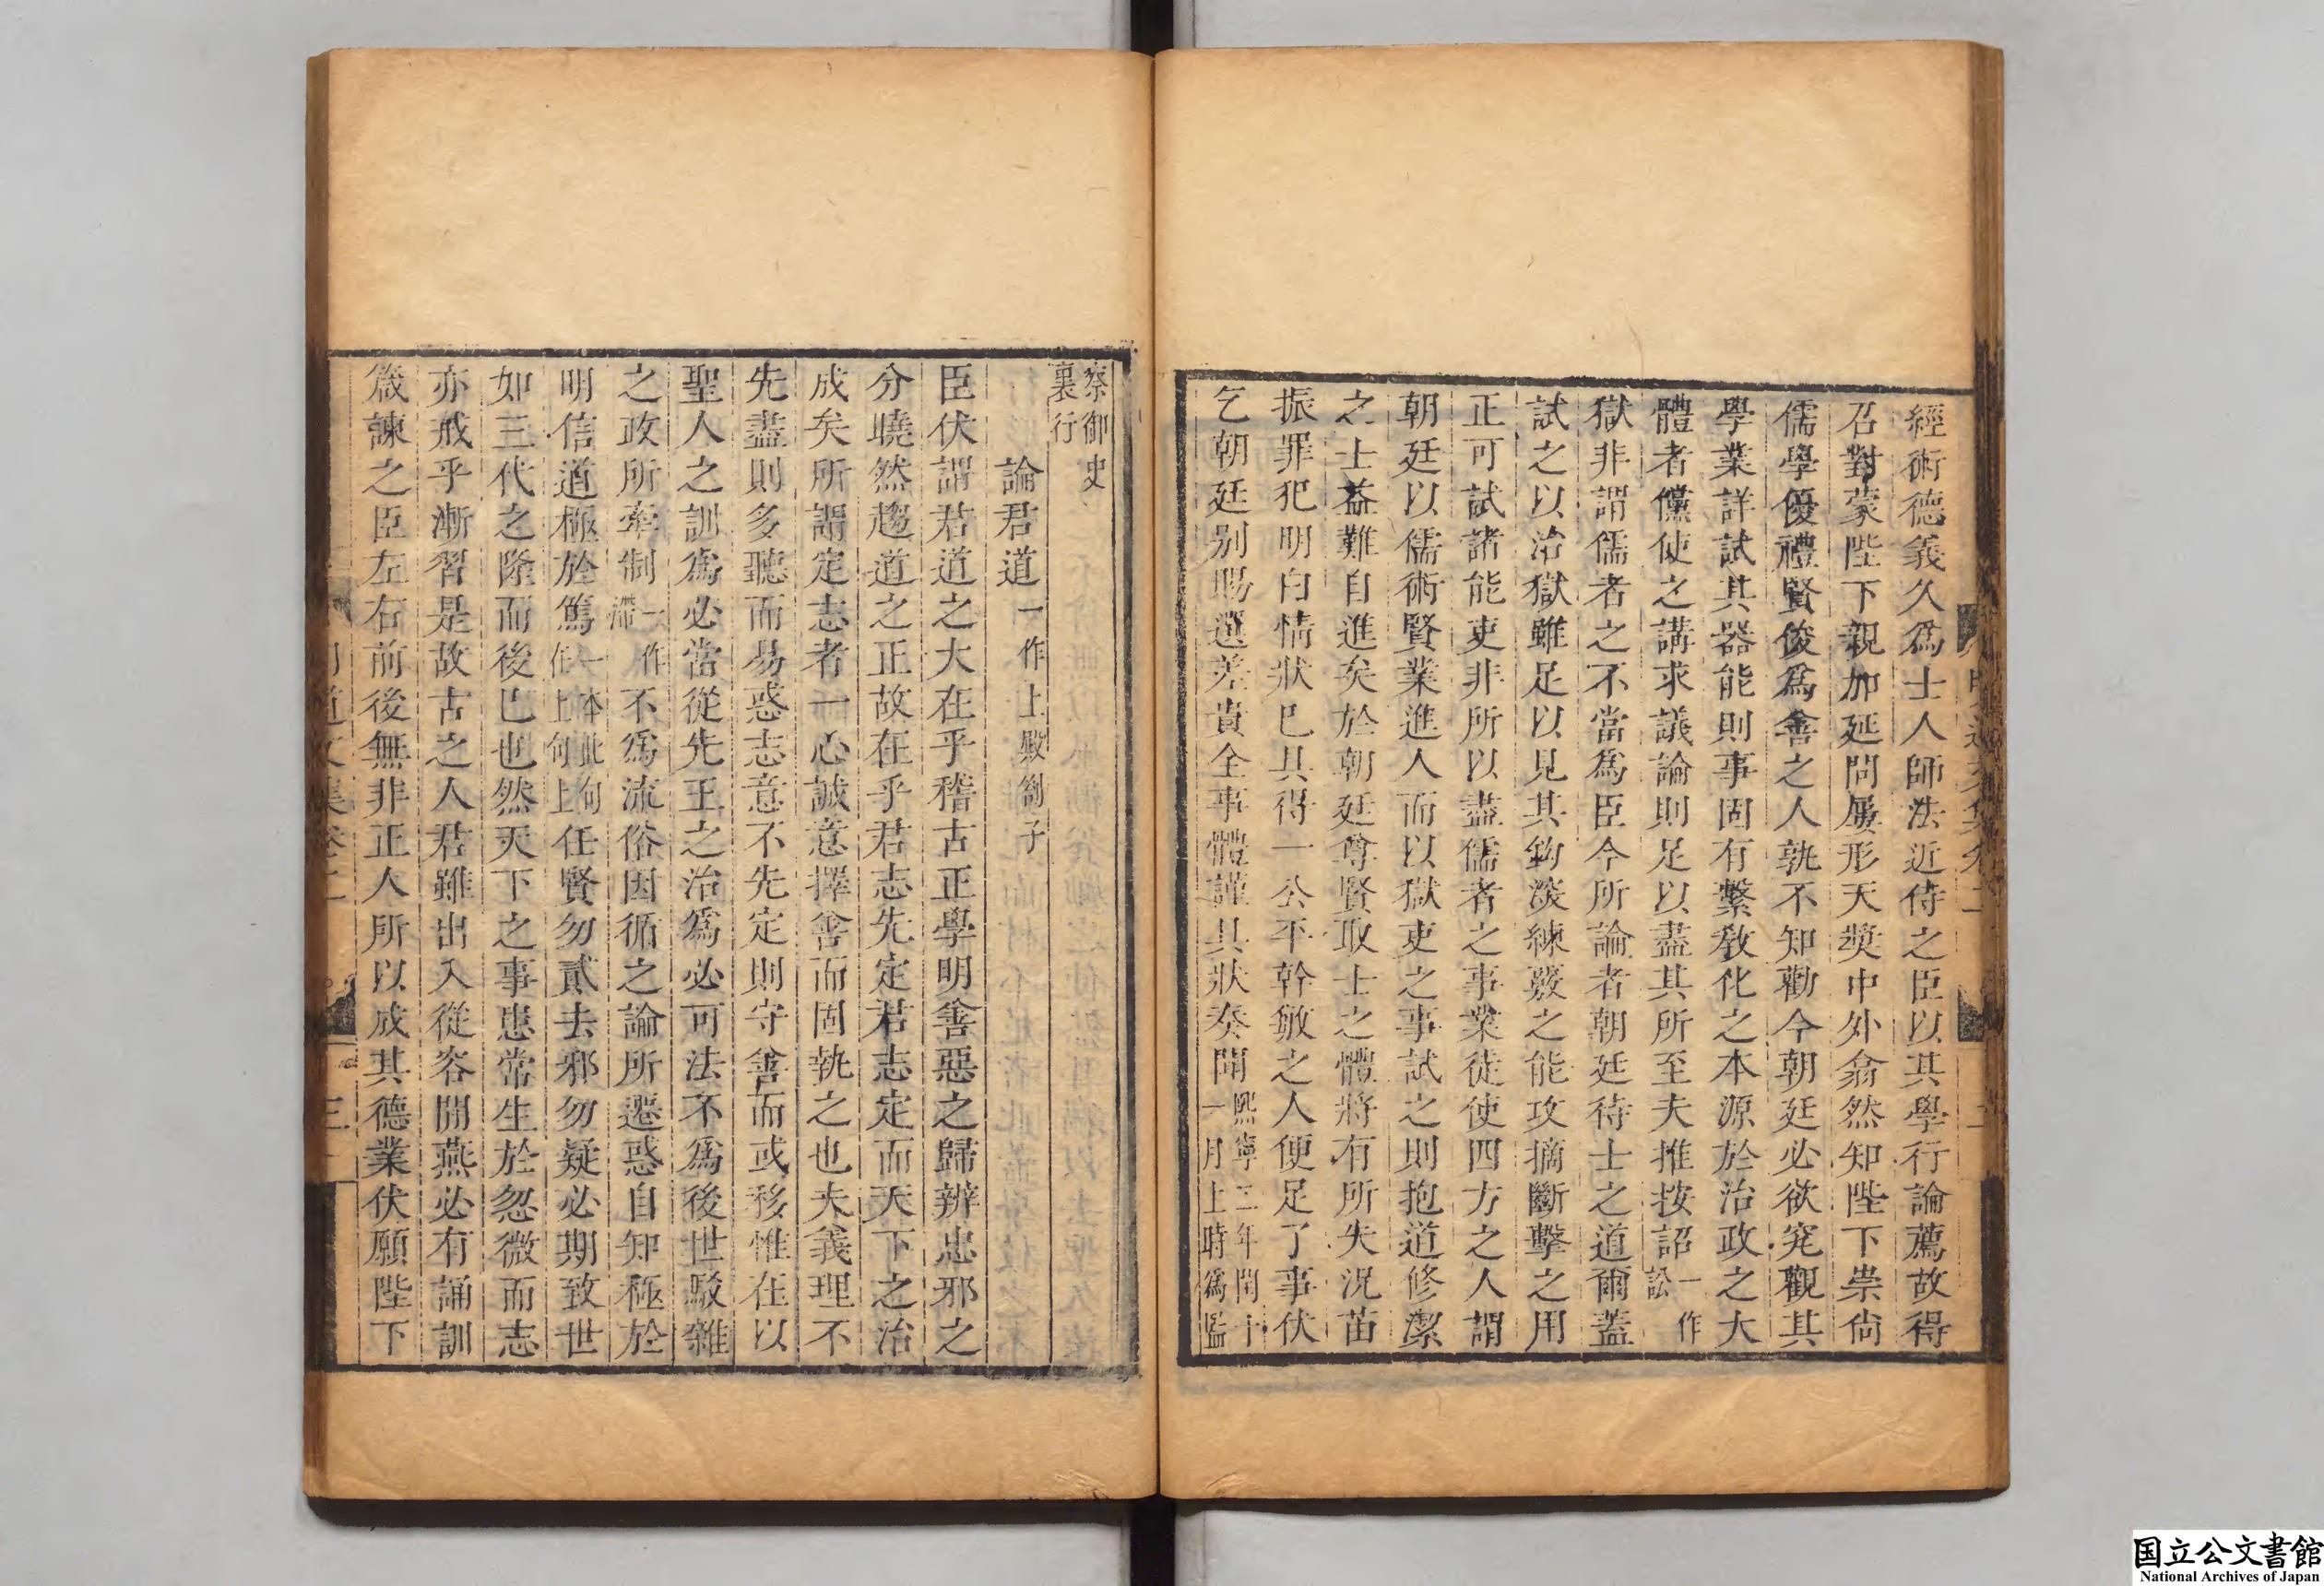 經術德義久爲士人師法近侍之臣以其學行論薦故得
召對蒙陛下親加延問屢形天奬中外翕然知陛下崇尙
儒學優禮賢俊爲善之人孰不知勸今朝廷必欲究觀其
學業詳試其器能則事固有繫教化之本源於治政之大
體者儻使之講求議論則足以盡其所至夫推按詔一作訟
獄非謂儒者之不當爲臣今所論者朝廷待士之道爾蓋
試之以治獄雖足以見其鈎深練覈之能攻摘斷擊之用
正可試諸能吏非所以盡儒者之事業徒使四方之人謂
朝廷以儒術賢業進人而以獄吏之事試之則抱道修潔
之士益難自進矣於朝廷尊賢取士之體將有所失況苗
振罪犯明白情狀已具得一公平幹敏之人便足了事伏
乞朝廷別賜選差貴全事體謹具狀奏聞熙寧二年閏十一月上時爲監
察御史裏行
論君道一作上殿劄子
臣伏謂君道之大在乎稽古正學明善惡之歸辨忠邪之
分曉然趨道之正故在乎君志先定君志定而天下之治
成矣所謂定志者一心誠意擇善而固執之也夫義理不
先盡則多聽而易惑志意不先定則守善而或移惟在以
聖人之訓爲必當從先王之治爲必可法不爲後世駁雜
之政所牽制一作滯不爲流俗因循之論所遷惑自知極於
明信道極於篤一本此句作上句上任賢勿貳去邪勿疑必期致世
如三代之隆而後已也然天下之事患常生於忽微而志
亦戒乎漸習是故古之人君雖出入從容閒燕必有誦訓
箴諫之臣左右前後無非正人所以成其德業伏願陛下
国立公文書館
National Archives of Japan